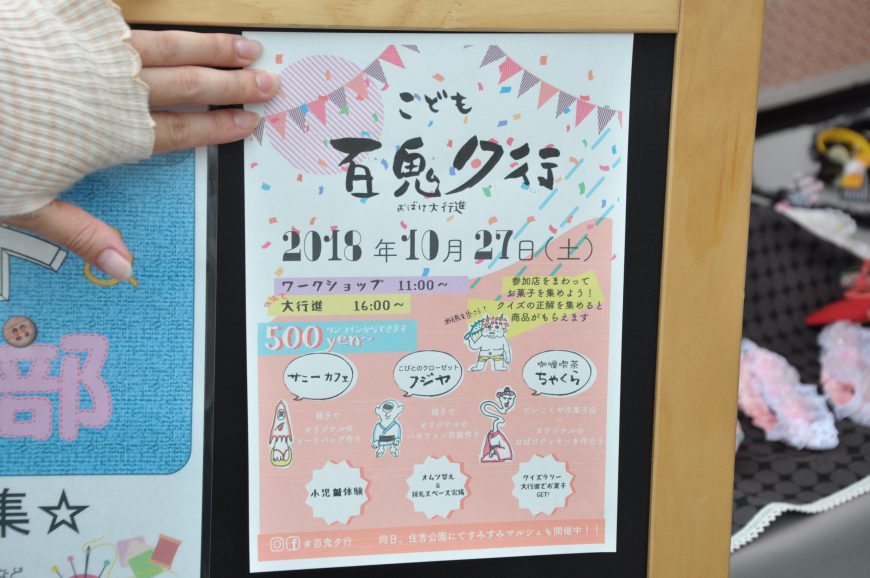 こども
百鬼夕行
おばけ大行進
2018年10月27日(土)
ワークショップ 11:00〜
大行進 16:00〜
参加店をまわって
お菓子を集めよう!
クイズの正解を集めると
商品がもらえます
500yen〜
ワンコインからできます
サニーカフェ
親子で
オリジナルの
トートバッグ作り
こびとのクローゼット
フジヤ
親子で
オリジナルの
ハロウィン衣装作り
咖喱喫茶
ちゃくら
だいこくや洋菓子店
オリジナルの
おばけクッキーを作ろう
小児鍼体験
オムツ替え
&
授乳スペース完備
クイズラリー
大行進でお菓子
GET!
#百鬼夕行 同日、住吉公園にてすみすみマルシェも開催中!!
部
集☆